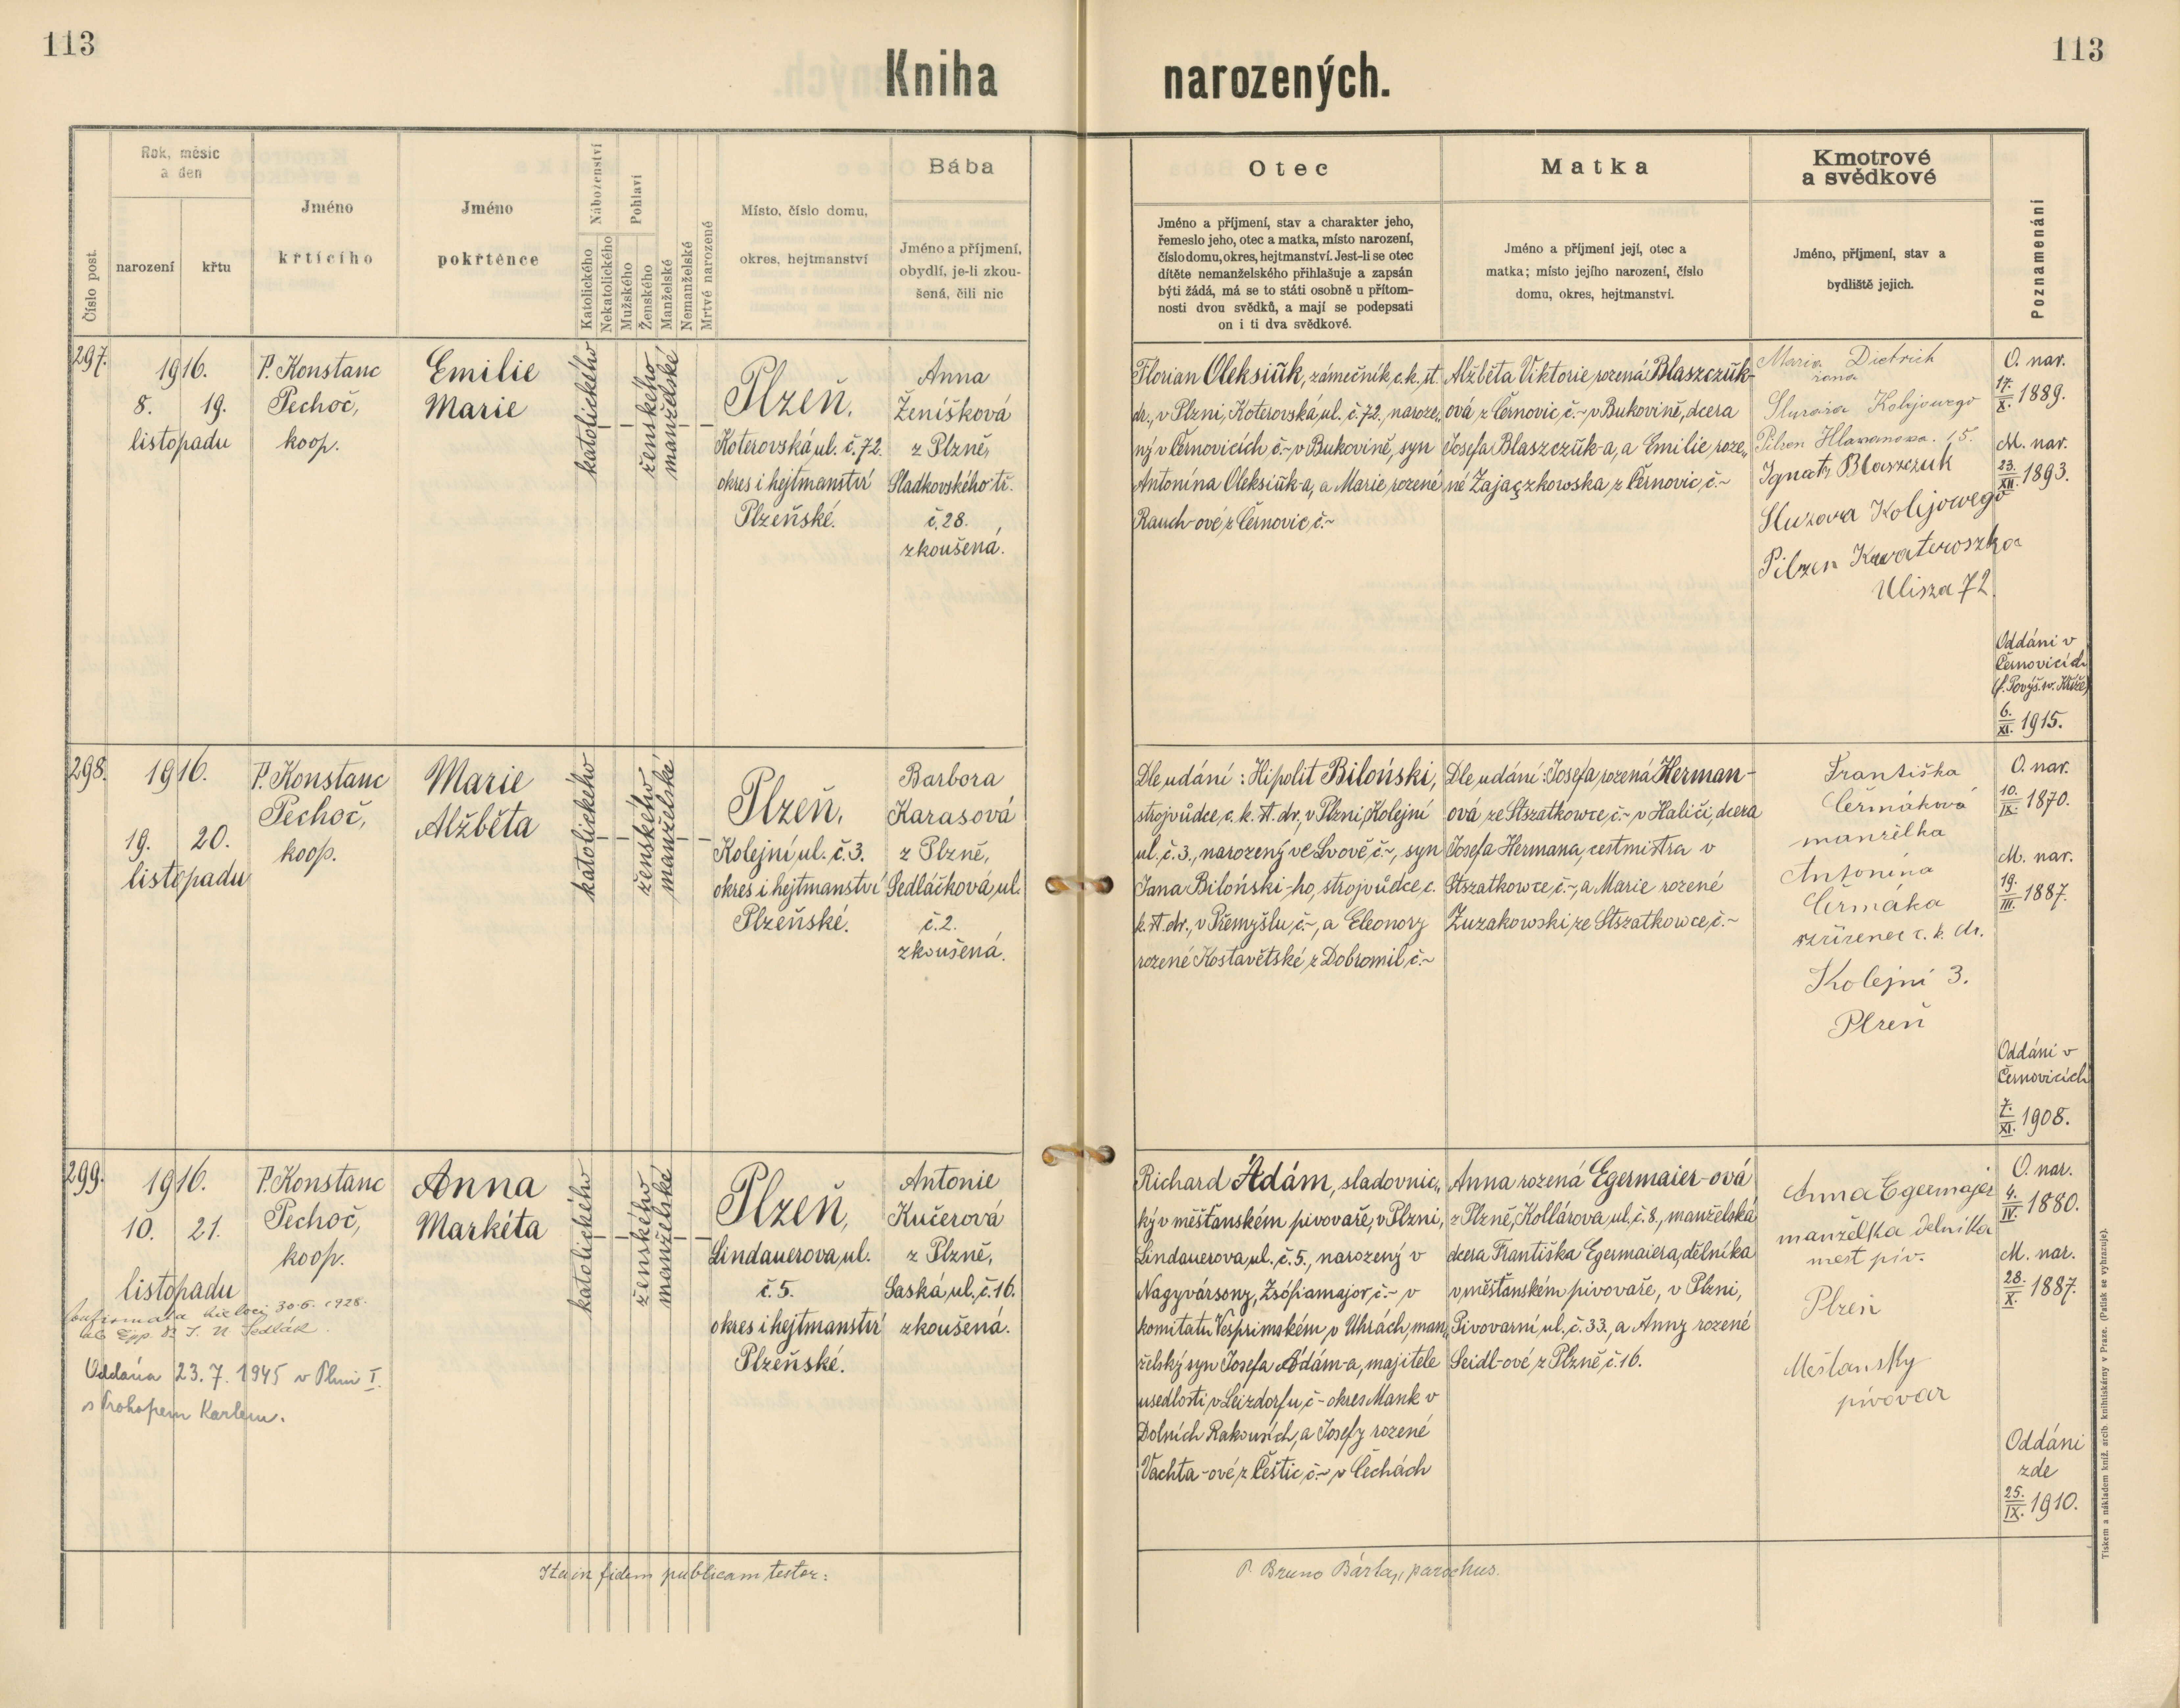 113
113
Kniha narozených.
Číslo post.
Rok, měsíc
a den
narození
křtu
Jméno
křtícího
Jméno
pokřtěnce
Náboženství
Katolického
Nekatolického
Pohlaví
Mužského
Ženského
Manželské
Nemanželské
Mrtvě narozené
Místo, číslo domu,
okres, hejtmanství
Bába
Jméno a příjmení,
obydlí, je-li zkou-
šená, čili nic
Otec
Jméno a příjmení, stav a charakter jeho,
řemeslo jeho, otec a matka, místo narození,
číslo domu, okres, hejtmanství. Jest-li se otec
dítěte nemanželského přihlašuje a zapsán
býti žádá, má se to státi osobně u přítom-
nosti dvou svědků, a mají se podepsati
on i ti dva svědkové.
Matka
Jméno a příjmení její, otec a
matka; místo jejího narození, číslo
domu, okres, hejtmanství.
Kmotrové
a svědkové
Jméno, příjmení, stav a
bydliště jejich.
Poznamenání
297.
1916.
8. 19.
listopadu
P. Konstanc
Pechoč,
koop.
Emilie
Marie
katolického
–
ženského
manželské
–
Plzeň,
Koterovská ul. č. 72.
okres i hejtmanství
Plzeňské.
Anna
Ženíšková
z Plzně,
Sladkovského tř.
č. 28.
zkoušená.
Florian Oleksiŭk, zámečník c. k. st.
dr., v Plzni, Koterovská ul. č. 72., naroze„
ný v Černovicích č.~ v Bukovině, syn
Antonína Oleksiŭk-a, a Marie rozené
Rauch-ové z Černovic, č.~
Alžběta Viktorie rozená Blaszczŭk-
ová z Černovic č.~ v Bukovině, dcera
Josefa Blaszczŭk-a, a Emilie roze„
né Zajaçzkowska z Černovic, č.~
Maria Dietrich
żona
Kolejowego
Pilzen 15.
Ignatz Blaszczuk
Kolejowego
Pilzen
Ulisza 72.
O. nar.
17./X. 1889.
M. nar.
23./XII. 1893.
Oddáni v
Černovicích
(f. Povýš. sv. Kříže)
6./XI. 1915.
298.
1916.
19. 20.
listopadu
P. Konstanc
Pechoč,
koop.
Marie
Alžběta
katolického
–
ženského
manželské
–
Plzeň,
Kolejní ul. č. 3.
okres i hejtmanství
Plzeňské.
Barbora
Karasová
z Plzně,
Sedláčková ul.
č. 2.
zkoušená.
Dle udání: Hipolit Biloński,
strojvůdce, c. k. st. dr., v Plzni, Kolejní
ul. č. 3., narozený ve Lvově č.~, syn
Jana Biloński-ho, strojvůdce, c.
k. st. dr., v Přemyšlu, č.~, a Eleonory
rozené Kostavětské z Dobromil, č.~
Dle udání: Josefa rozená Herman-
ová ze Stszatkowce, č.~ v Haliči, dcera
Josefa Hermana, cestmistra v
Stszatkowce, č.~, a Marie rozené
Zuzakowski ze Stszatkowce, č.~
Františka
Čermáková
manželka
Antonína
Čermáka
zřízenec c. k. dr.
Kolejní 3.
Plzeň
O. nar.
10./IX. 1870.
M. nar.
19./III. 1887.
Oddáni v
Černovicích
7./XI. 1908.
299.
1916.
10. 21.
listopadu
Confirmata 30.6. 1928.
Sedlák.
Oddána 23. 7. 1945 v Plzni I.
s Prokopem Karlem.
P. Konstanc
Pechoč,
koop.
Anna
Markéta
katolického
–
ženského
manželské
–
Plzeň,
Lindauerova ul.
č. 5.
okres i hejtmanství
Plzeňské.
Antonie
Kučerová
z Plzně,
Saská ul. č. 16.
zkoušená.
Richard Ádám, sladovnic„
ký v měšťanském pivovaře, v Plzni,
Lindauerova ul. č. 5., narozený v
Nagyvársony, Zsófiamajor, č.~, v
komitatu Vesprimském v Uhrách, man„
želský syn Josefa Ádám-a, majitele
usedlosti, v Leizdorfu, č.~ okres Mank v
Dolních Rakousích, a Josefy rozené
Vachta-ové z Čestic, č.~ v Čechách
Anna rozená Egermaier-ová
z Plzně, Kollárova ul. č. 8., manželská
dcera Františka Egermaiera, dělníka
v měšťanském pivovaře, v Plzni,
Pivovarní ul. č. 33., a Anny rozené
Seidl-ové z Plzně, č. 16.
Anna Egermajer
manželka delnika
mest piv.
Plzen
Mešťansky
pivovar
O. nar.
4./IV. 1880.
M. nar.
28./X. 1887.
Oddáni
zde
25./IX. 1910.
Ita in fidem publicam testor:
P. Bruno Bárta, parochus.
Tiskem a nákladem kníž. arcib. knihtiskárny v Praze. (Patisk se vyhrazuje).